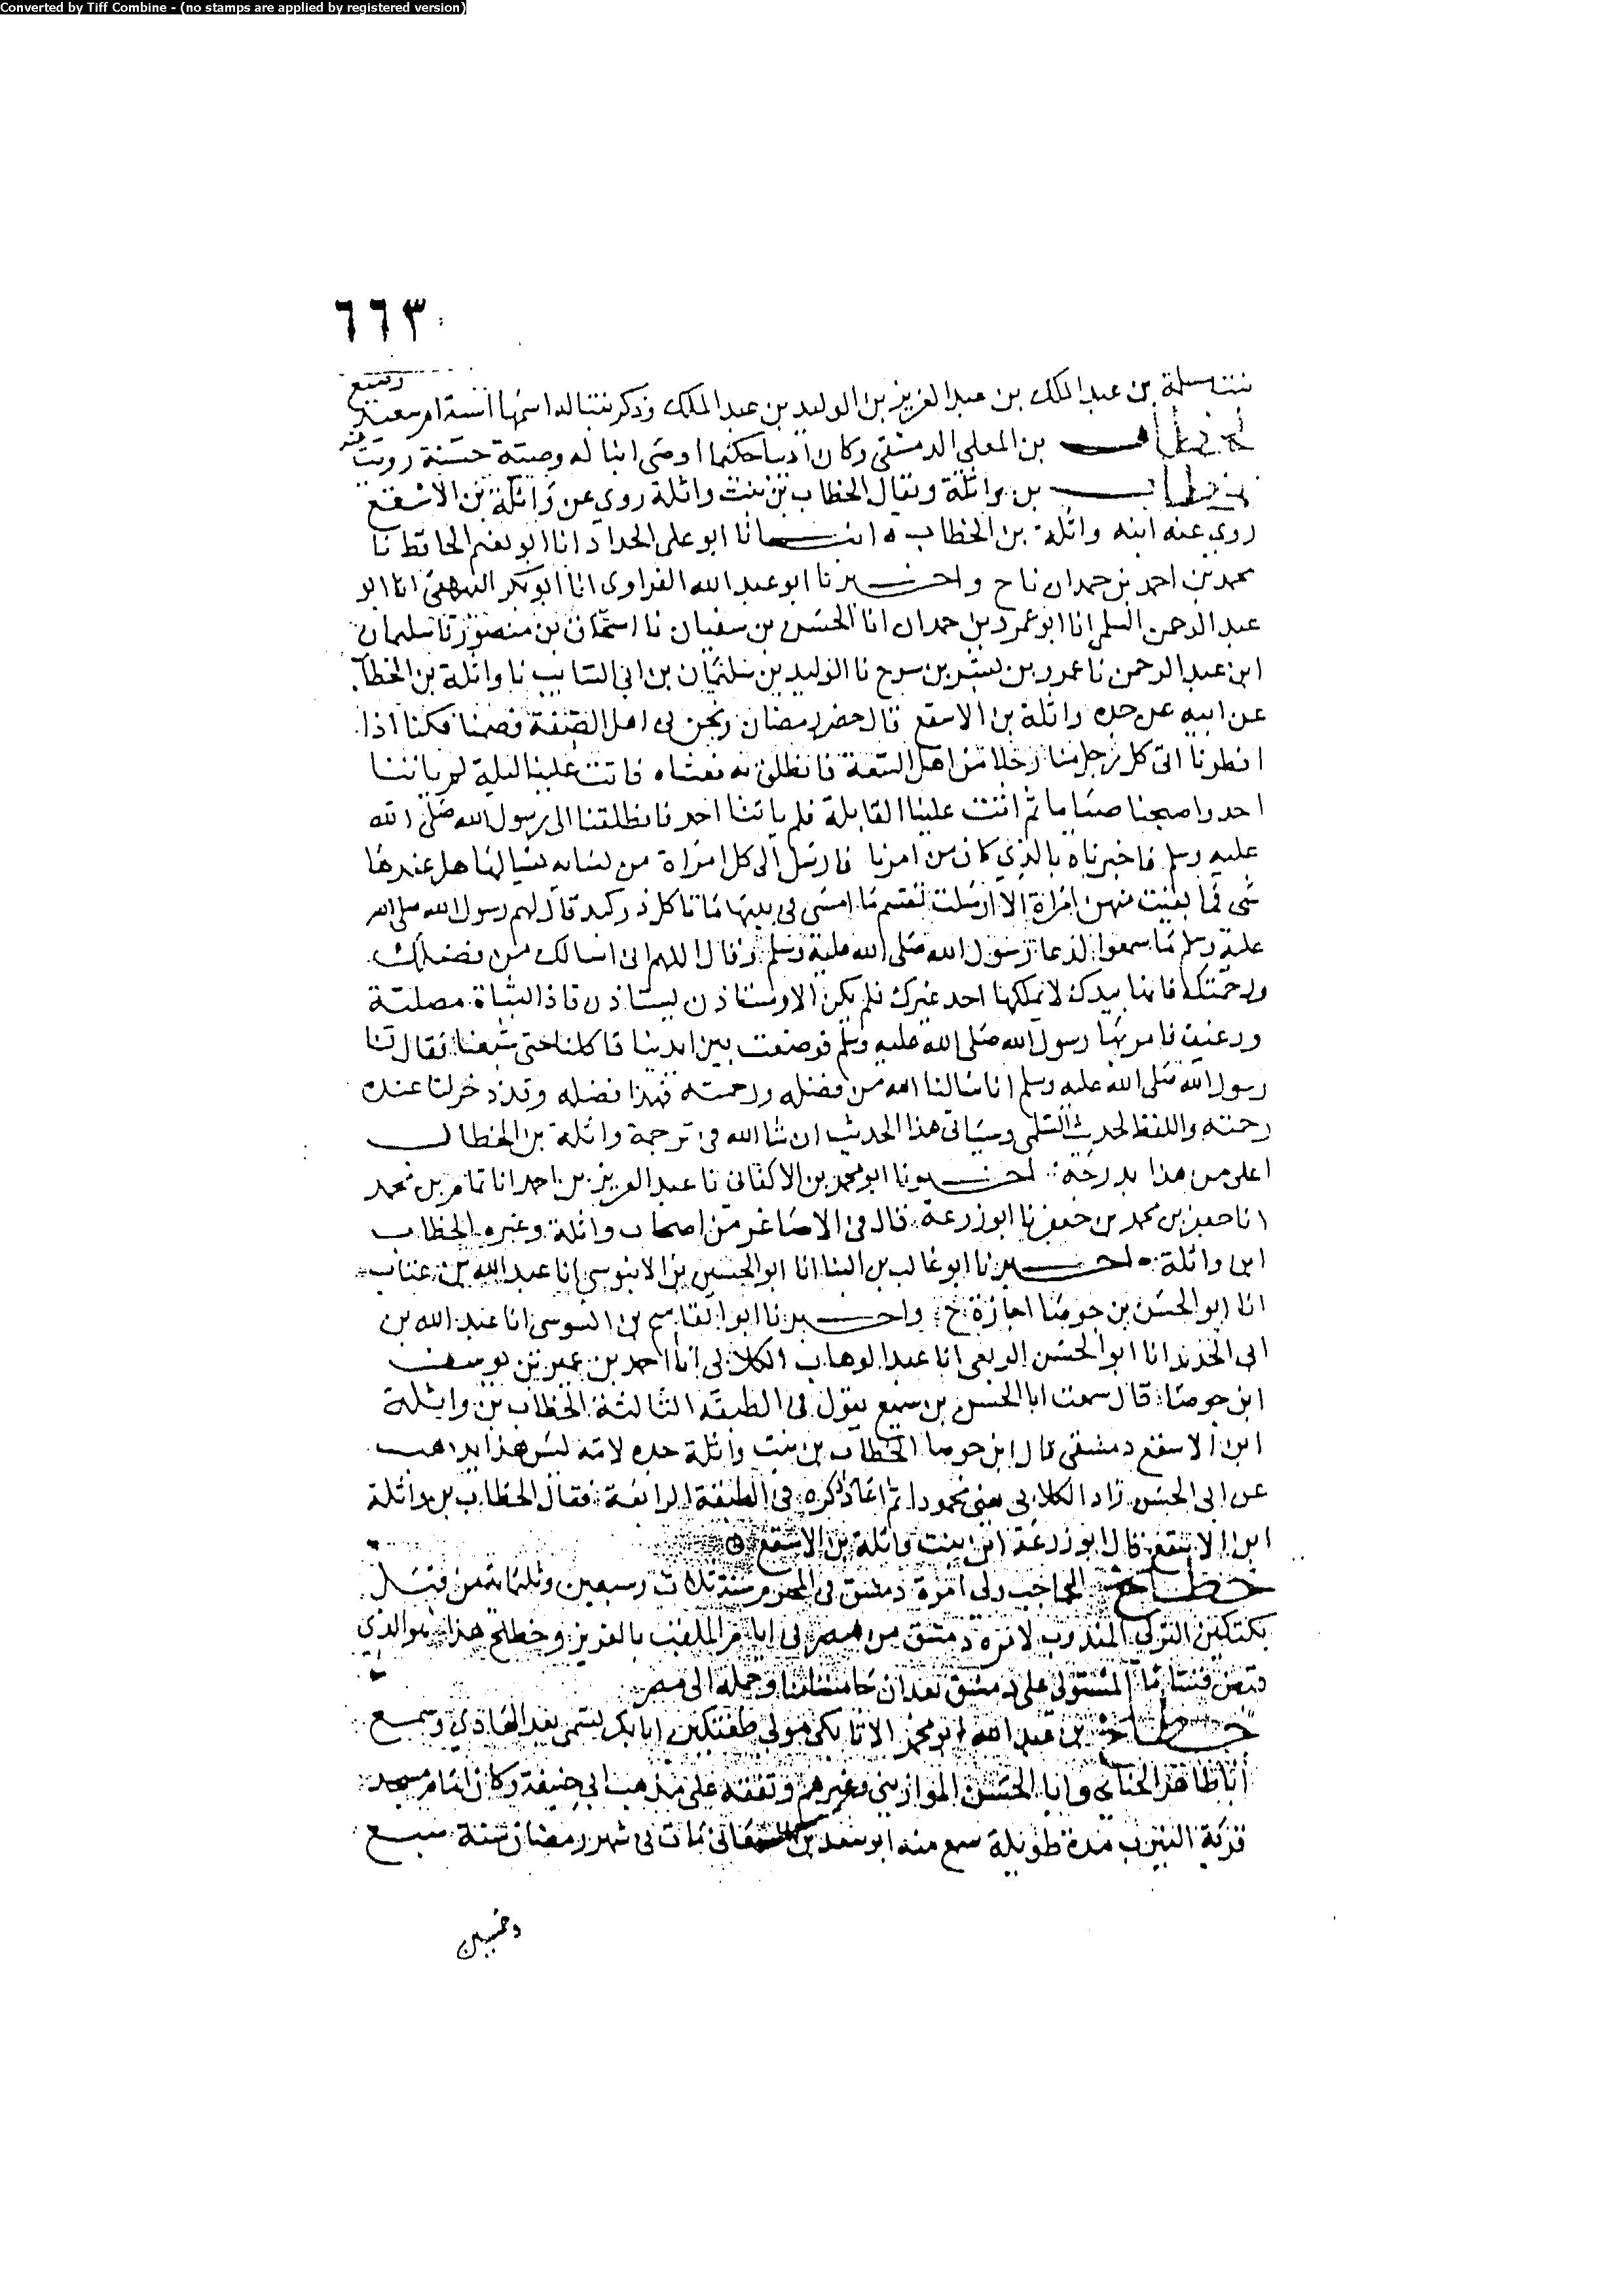 Converted by Tiff Combine - (no stamps are applied by registered version)
٦٦٣
بنت سلمة بن عبد الملك بن عبد العزيز بن الوليد بن عبد الملك وذكر بنتا له اسمها
الخطاب بن المعلى الدمشقي وكان اديبا حكيما اوصى ابنا له وصية حسنة رويت عنه
خطاب بن واثلة ويقال الخطاب بن بنت واثلة روى عن واثلة بن الاسقع
روى عنه ابنه واثلة بن الخطاب انبانا ابو على الحداد انا ابو نعيم الحافظ نا
محمد بن احمد بن حمدان نا ح واخبرنا ابو عبد الله الفراوى انا ابو بكر البيهقى انا ابو
عبد الرحمن السلمى انا ابو عمرو بن حمدان انا الحسن بن سفيان نا اسحاق بن منصور نا سليمان
ابن عبد الرحمن نا عمرو بن بشر بن سرح نا الوليد بن سليمان بن ابى السايب نا واثلة بن الخطاب
عن ابيه عن جده واثلة بن الاسقع قال حضر رمضان ونحن فى اهل الصفة فصمنا فكنا اذا
افطرنا اتى كل رجل منا رجلا من اهل السعة فانطلق به فعشاه فاتت علينا ليلة لم ياتنا
احد واصبحنا صياما ثم اتت علينا القابلة فلم ياتنا احد فانطلقنا الى رسول الله صلى الله
عليه وسلم فاخبرناه بالذي كان من امرنا فارسل الى كل امراة من نسايه يسالها هل عندها
شى فما بقيت منهن امراة الا ارسلت تقسم ما امسى فى بيتها ما ياكل ذو كبد قال لهم رسول الله صلى الله
عليه وسلم فاجتمعوا فدعا رسول الله صلى الله عليه وسلم وقال اللهم انى اسالك من فضلك
ورحمتك فانها بيدك لا يملكها احد غيرك فلم يكن الا ومستاذن يستاذن فاذا بشاة مصلية
ورغيف فامر بها رسول الله صلى الله عليه وسلم فوضعت بين ايدينا فاكلنا حتى شبعنا فقال لنا
رسول الله صلى الله عليه وسلم انا سالنا الله من فضله ورحمته فهذا فضله وقد ذخر لنا عنده
رحمته واللفظ لحديث السلمى وسياتى هذا الحديث ان شا الله فى ترجمة واثلة بن الخطاب
اعلى من هذا بدرجة اخبرنا ابو محمد بن الاكفانى نا عبد العزيز بن احمد انا تمام بن محمد
انا جعفر بن محمد بن جعفر نا ابو زرعة قال فى الاصاغر من اصحاب واثلة وغيره الخطاب
ابن واثلة اخبرنا ابو غالب بن البنا انا ابو الحسين بن الابنوسى انا عبد الله بن عتاب
انا ابو الحسن بن جوصا اجازة ح واخبرنا ابو القاسم بن السوسى انا عبد الله بن
ابى الحديد انا ابو الحسن الربعى انا عبد الوهاب الكلابى انا احمد بن عمير بن يوسف
ابن جوصا قال سمعت ابا الحسن بن سميع يقول فى الطبقة الثالثة الخطاب بن واثلة
ابن الاسقع دمشقى قال ابن جوصا الخطاب بن بنت واثلة جده لامه ليس هذا
عن ابى الحسن زاد الكلابى يعنى محمودا ثم اعاد ذكره فى الطبقة الرابعة فقال الخطاب بن واثلة
ابن الاسقع قال ابو زرعة ابن بنت واثلة بن الاسقع
خطلخ الحاجب ولى امرة دمشق فى المحرم سنة ثلاث وسبعين وثلثماية من قبل
بكتكين التركي المندوب لامرة دمشق من مصر فى ايام الملقب بالعزيز وخطلخ هذا هو الذي
قبض قسام المستولى على دمشق بعد ان وحمله الى مصر
خطلخ بن عبد الله ابو محمد الاتابكى مولى طغتكين اتابك يسمى بعبد الهادي وسمع
أبا طاهر الحنائي وابا الحسن الموازيني وغيرهم وتفقه على مذهب ابي حنيفة وكان امام مسجد
قرية النيرب مدة طويلة سمع منه ابو سعد بن السمعانى مات فى شهر رمضان سنة سبع
وخمسين